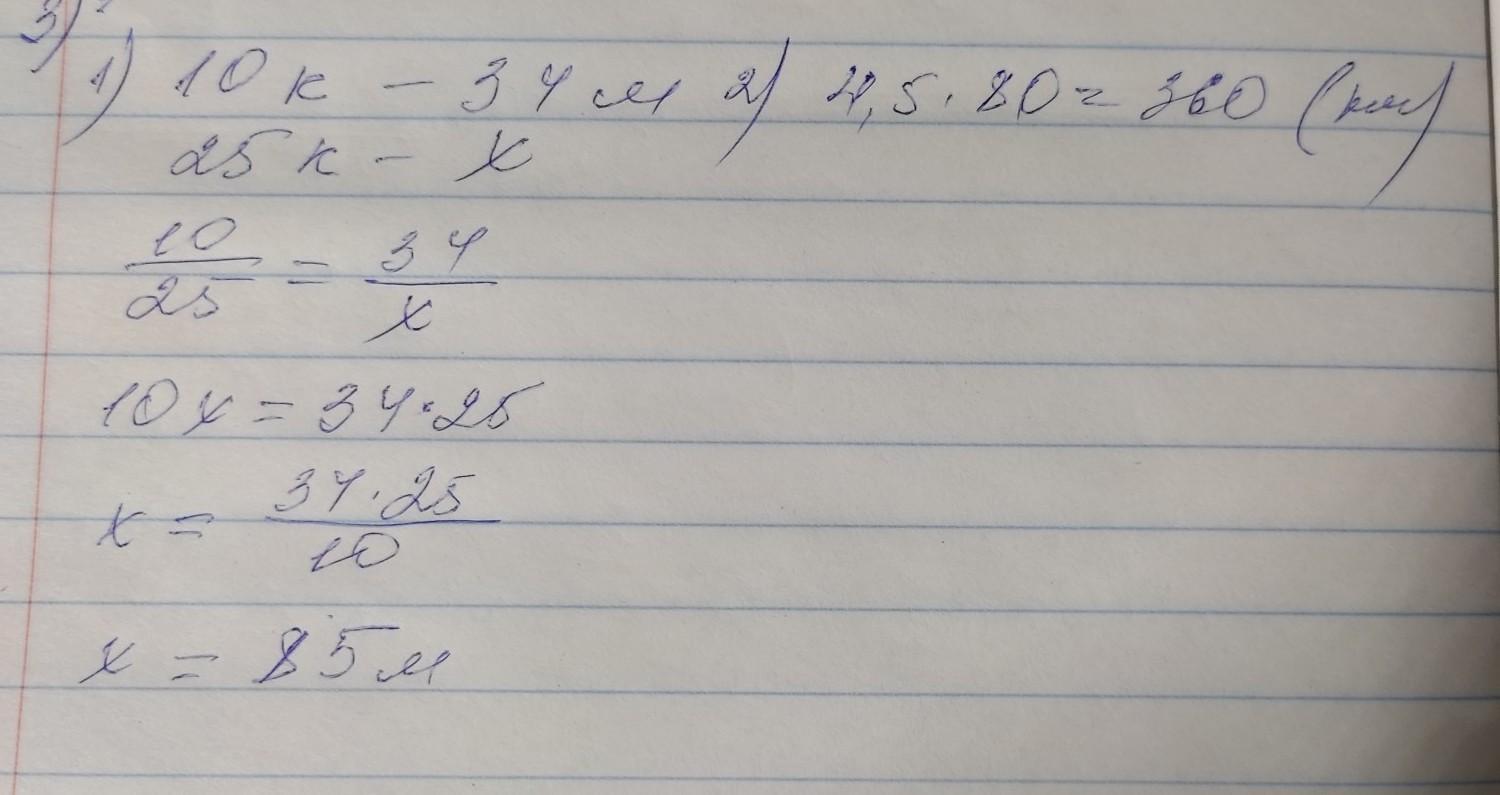 3)
1) 10 к - 34 м 2) 4,5 · 80 = 360 (км)
25 к - x
10/25 = 34/x
10x = 34 · 25
x = 34 · 25/10
x = 85 м